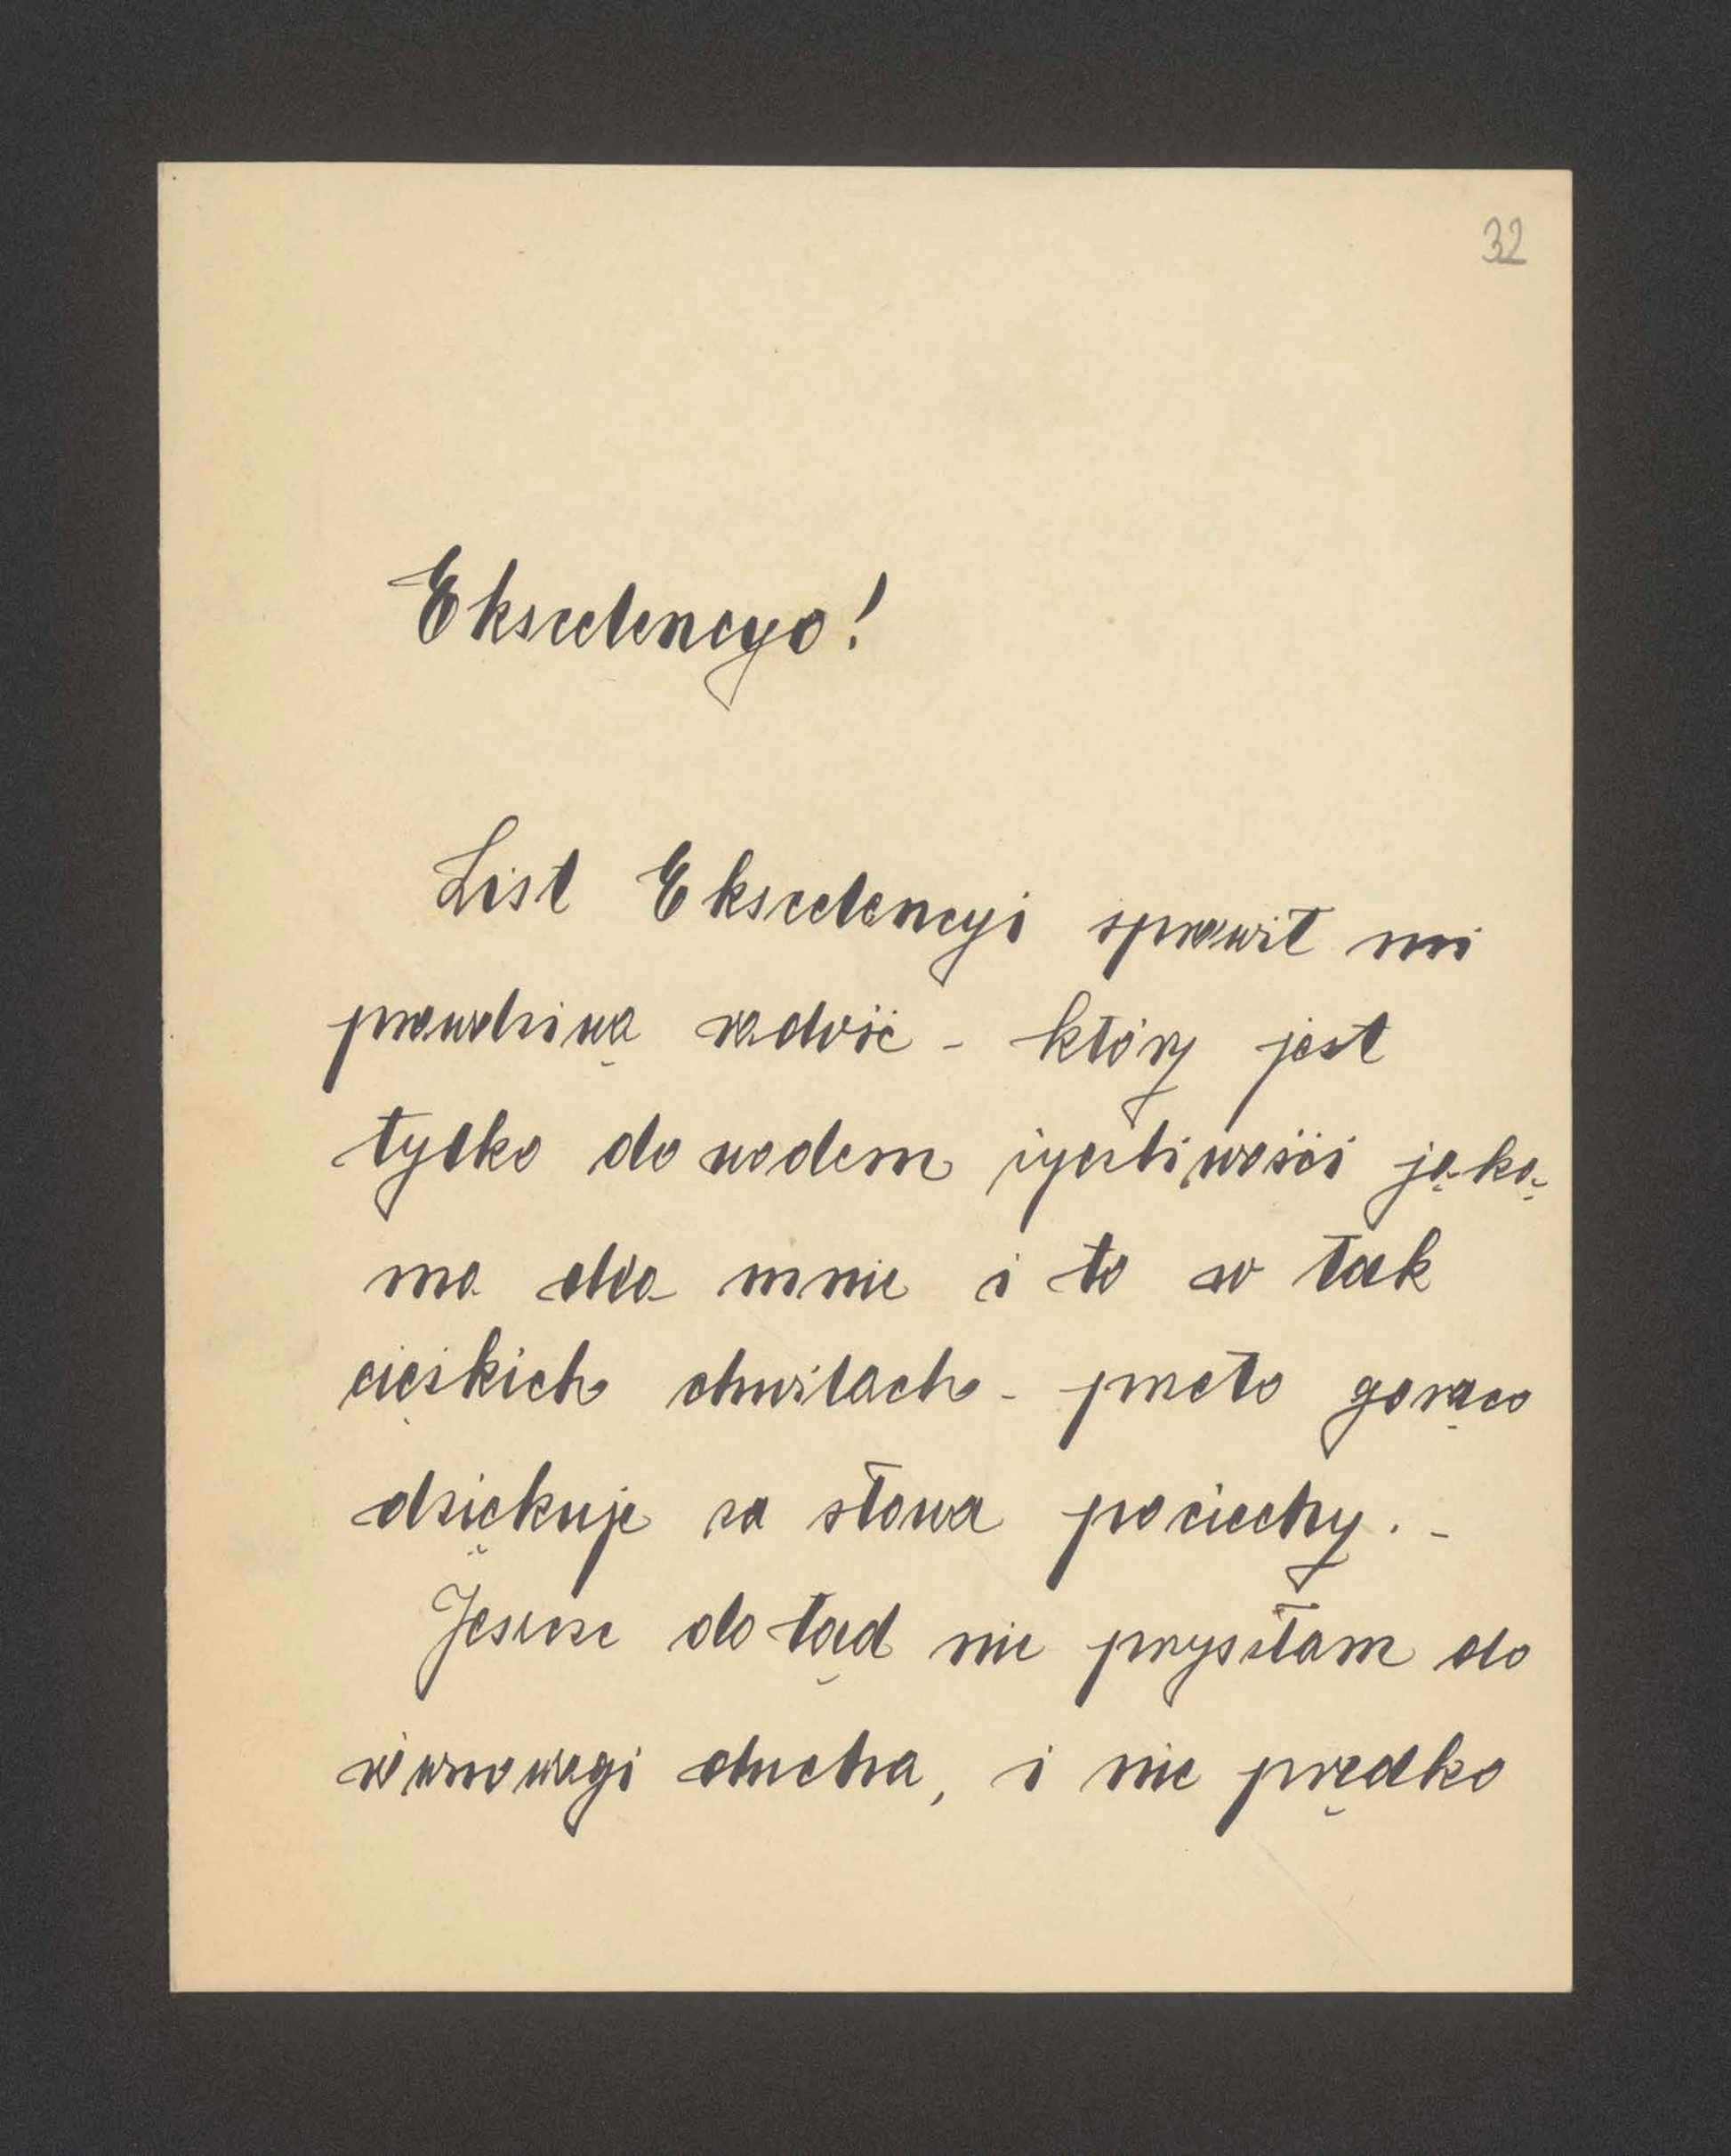 32
Ekscelencyo!
List Ekscelencyi sprawił mi
prawdziwą radość - który jest
tylko dowodem życzliwości jaką
ma dla mnie i to w tak
ciężkich chwilach - przeto gorąco
dziękuję za słowa pociechy. -
Jeszcze dotąd nie przyszłam do
równowagi ducha, i nie prędko